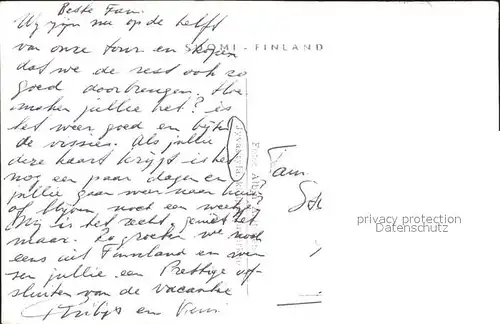 Beste Fam.
Wij zijn nu op de helft
van onze tour en hopen
SUOMI - FINLAND
dat we de rest ook zo
goed doorbrengen. Hoe
maken jullie het? is
het weer goed en bijten
de vissies. Als jullie
deze kaart krijgt is het
nog een paar dagen en
jullie gaan weer naar huis
of blijven nog een weekje
Mij is het recht, geniet het
maar. Zo groeten we nog
eens uit Finnland en wen
sen jullie een Prettige
sluiten van de vacantie
en
Jyväskylä
Fam
privacy protection
Datenschutz